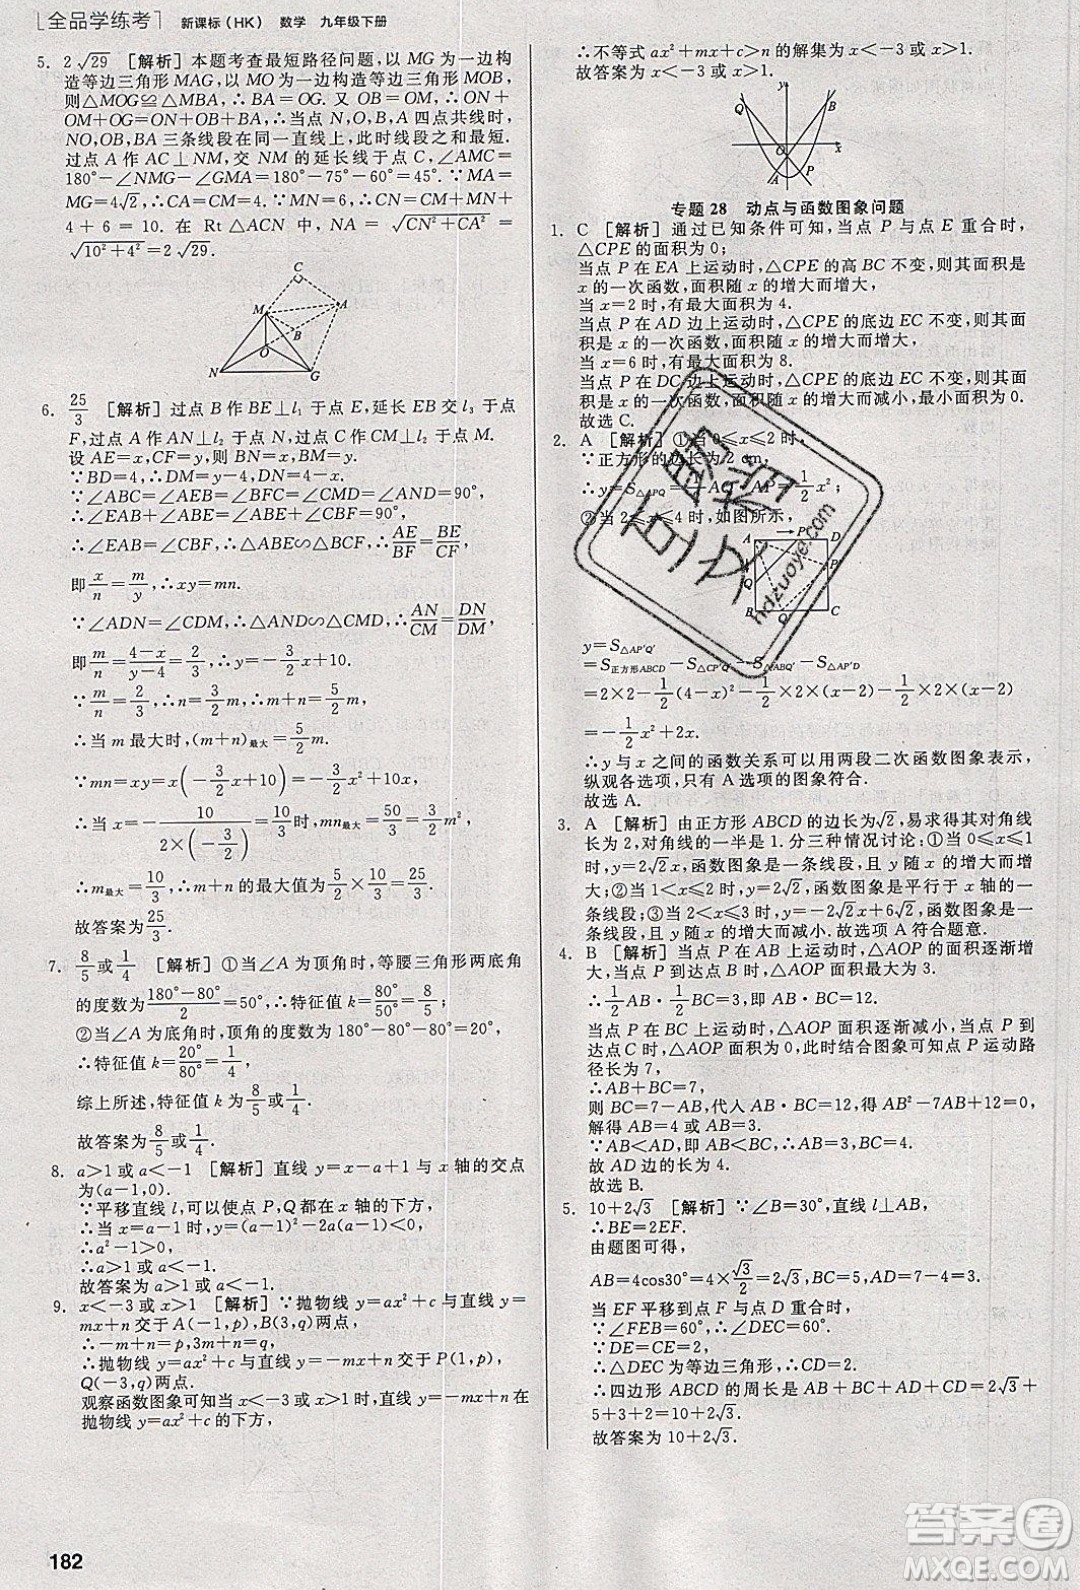 全品学练考 新课标(HK) 数学 九年级下册
5. 2√29 [解析]本题考查最短路径问题,以MG为一边构
造等边三角形MAG,以MO为一边构造等边三角形MOB,
则△MOG≌△MBA,∴BA=OG.又OB=OM,∴ON+
OM+OG=ON+OB+BA;∴当点N,O,B,A四点共线时,
NO,OB,BA三条线段在同一直线上,此时线段之和最短.
过点A作AC⊥NM,交NM的延长线于点C,∠AMC=
180°-∠NMG-∠GMA=180°-75°-60°=45°.∵MA=
MG=4√2,∴CA=CM=4.∵MN=6,∴CN=CM+MN=
4+6=10.在Rt△ACN中,NA=√(CN²+CA²)=
√(10²+4²)=2√29.
C
M A
B
O
N G
6. 25/3 [解析]过点B作BE⊥l₁于点E,延长EB交l₃于点
F,过点A作AN⊥l₂于点N,过点C作CM⊥l₂于点M.
设AE=x,CF=y,则BN=x,BM=y.
∵BD=4,∴DM=y-4,DN=4-x.
∵∠ABC=∠AEB=∠BFC=∠CMD=∠AND=90°,
∴∠EAB+∠ABE=90°,∠ABE+∠CBF=90°,
∴∠EAB=∠CBF,∴△ABE∽△BCF,∴AE/BF=BE/CF,
即x/n=m/y,∴xy=mn.
∵∠ADN=∠CDM,∴△AND∽△CMD,∴AN/CM=DN/DM,
即m/n=(4-x)/(y-4)=2/3,∴y=-3/2x+10.
∵m/n=2/3,∴n=3/2m,
∴当m最大时,(m+n)最大=5/2m.
∵mn=xy=x(-3/2x+10)=-3/2x²+10x=3/2m²,
∴当x=-10/(2×(-3/2))=10/3时,mn最大=50/3=3/2m²,
∴m最大=10/3,∴m+n的最大值为5/2×10/3=25/3.
故答案为25/3.
7. 8/5或1/4 [解析]①当∠A为顶角时,等腰三角形两底角
的度数为(180°-80°)/2=50°,∴特征值k=80°/50°=8/5;
②当∠A为底角时,顶角的度数为180°-80°-80°=20°,
∴特征值k=20°/80°=1/4.
综上所述,特征值k为8/5或1/4.
故答案为8/5或1/4.
8. a>1或a<-1 [解析]直线y=x-a+1与x轴的交点
为(a-1,0).
∵平移直线l,可以使点P,Q都在x轴的下方,
∴当x=a-1时,y=(a-1)²-2a(a-1)<0,
∴a²-1>0,
∴a>1或a<-1.
故答案为a>1或a<-1.
9. x<-3或x>1 [解析]∵抛物线y=ax²+c与直线y=
mx+n交于A(-1,p),B(3,q)两点,
∴-m+n=p,3m+n=q,
∴抛物线y=ax²+c与直线y=-mx+n交于P(1,p),
Q(-3,q)两点.
观察函数图象可知当x<-3或x>1时,直线y=-mx+n在
抛物线y=ax²+c的下方,
∴不等式ax²+mx+c>n的解集为x<-3或x>1.
故答案为x<-3或x>1.
y
Q B
O x
A P
专题28 动点与函数图象问题
1. C [解析]通过已知条件可知,当点P与点E重合时,
△CPE的面积为0;
当点P在EA上运动时,△CPE的高BC不变,则其面积是
x的一次函数,面积随x的增大而增大,
当x=2时,有最大面积为4.
当点P在AD边上运动时,△CPE的底边EC不变,则其面
积是x的一次函数,面积随x的增大而增大,
当x=6时,有最大面积为8.
当点P在DC边上运动时,△CPE的底边EC不变,则其面
积是x的一次函数,面积随x的增大而减小,最小面积为0.
故选C.
2. A [解析]①当0≤x≤2时,
∵正方形的边长为2 cm,
∴y=S△APQ=1/2AQ·AP=1/2x²;
②当2≤x≤4时,如图所示,
A P D
Q P′
B Q′ C
y=S△AP′Q′
=S正方形ABCD-S△CP′Q′-S△ABQ′-S△AP′D
=2×2-1/2(4-x)²-1/2×2×(x-2)-1/2×2×(x-2)
=-1/2x²+2x.
∴y与x之间的函数关系可以用两段二次函数图象表示,
纵观各选项,只有A选项的图象符合.
故选A.
3. A [解析]由正方形ABCD的边长为√2,易求得其对角线
长为2,对角线的一半是1.分三种情况讨论:①当0≤x≤1
时,y=2√2x,函数图象是一条线段,且y随x的增大而增
大;②当1<x≤2时,y=2√2,函数图象是平行于x轴的一
条线段;③当2<x≤3时,y=-2√2x+6√2,函数图象是一
条线段,且y随x的增大而减小.故选项A符合题意.
4. B [解析]当点P在AB上运动时,△AOP的面积逐渐增
大,当点P到达点B时,△AOP面积最大为3.
∴1/2AB·1/2BC=3,即AB·BC=12.
当点P在BC上运动时,△AOP面积逐渐减小,当点P到
达点C时,△AOP面积为0,此时结合图象可知P运动路
径长为7,
∴AB+BC=7,
则BC=7-AB,代入AB·BC=12,得AB²-7AB+12=0,
解得AB=4或AB=3.
∵AB<AD,即AB<BC,∴AB=3,BC=4.
故AD边的长为4.
故选B.
5. 10+2√3 [解析]∵∠B=30°,直线l⊥AB,
∴BE=2EF.
由题图可得,
AB=4cos30°=4×√3/2=2√3,BC=5,AD=7-4=3.
当EF平移到点F与点D重合时,
∵∠BFE=60°,∴∠DEC=60°.
∵DE=CE=2,
∴△DEC为等边三角形,∴CD=2,
∴四边形ABCD的周长是AB+BC+AD+CD=2√3+
5+3+2=10+2√3.
故答案为10+2√3.
182
hdzuoye.com
答案圈
MXQE.COM